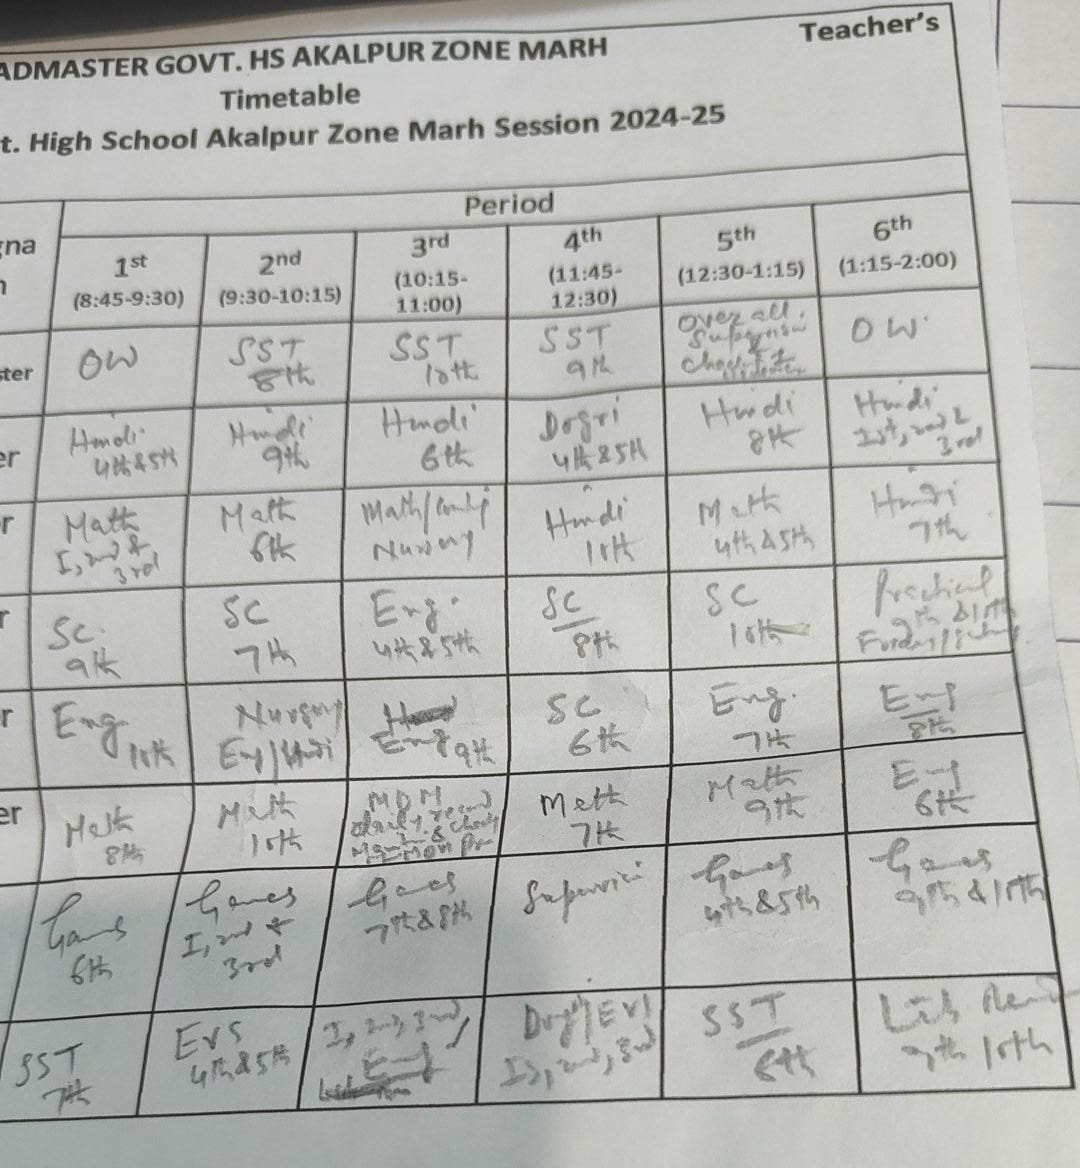 Teacher's
ADMASTER GOVT. HS AKALPUR ZONE MARH
Timetable
t. High School Akalpur Zone Marh Session 2024-25
gna
Period
1st
(8:45-9:30)
2nd
(9:30-10:15)
3rd
(10:15-
11:00)
4th
(11:45-
12:30)
5th
(12:30-1:15)
6th
(1:15-2:00)
ster
OW
SST
8th
SST
10th
SST
9th
Over all
OW
er
Hindi
4th & 5th
Hindi
9th
Hindi
6th
Dogri
4th & 5th
Hindi
8th
Hindi
Ist, 2nd &
3rd
r
Math
I, 2nd &
3rd
Math
6th
Math/
Nursery
Hindi
10th
Math
4th & 5th
Hindi
7th
r
SC.
9th
SC
7th
Eng.
4th & 5th
SC
8th
SC
10th
Practical
9th & 10th
r
Eng
10th
Nursery
Eng/Hindi
Eng 9th
SC
6th
Eng.
7th
Eng
8th
er
Math
8th
Math
10th
MDM
Math
7th
Math
9th
Eng
6th
Games
6th
Games
I, 2nd &
3rd
Games
7th & 8th
Games
4th & 5th
Games
9th & 10th
SST
7th
EVS
4th & 5th
I, 2nd, 3rd,
Eng
Dogri/EVS
Ist, 2nd, 3rd
SST
6th
9th 10th